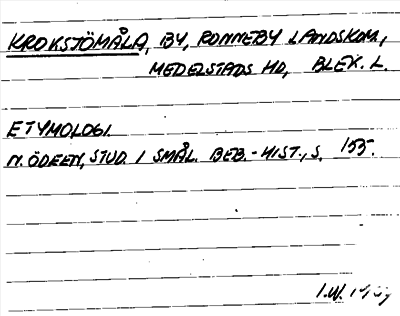 KROKSJÖMÅLA, BY, RONNEBY LANDSKOM.,
MEDELSTADS HD, BLEK. L.
ETYMOLOGI.
N. ÖDEEN, STUD. I SMÅL. BEB.-HIST., S. 155.
I.W.